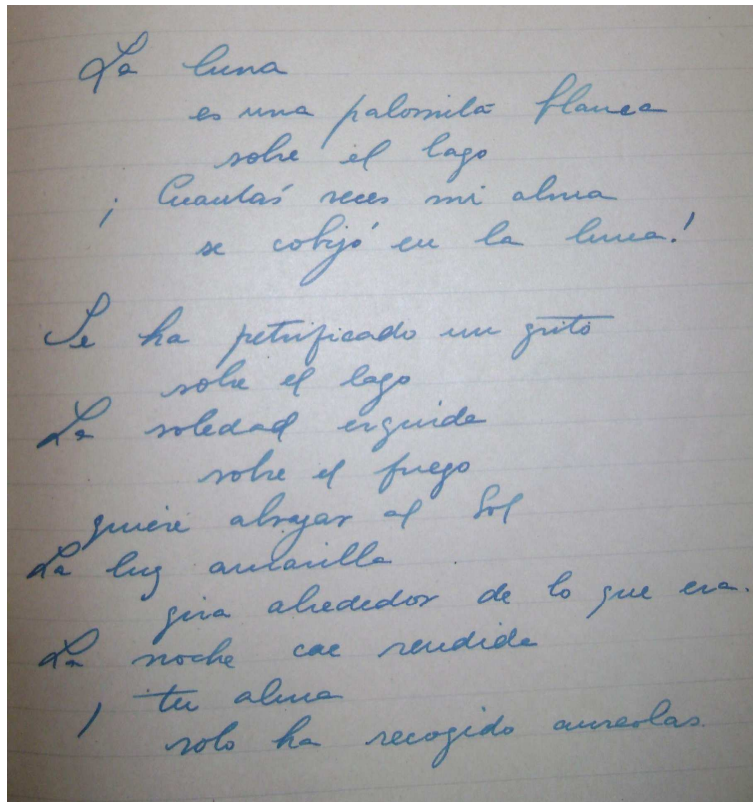 La luna
es una palomita blanca
sobre el lago
¡Cuantas veces mi alma
se cobijó en la luna!
Se ha petrificado un grito
sobre el lago
La soledad erguida
sobre el fuego
quiere abrazar al Sol
La luz amarilla
gira alrededor de lo que era.
La noche cae rendida
¡ tu alma
solo ha recogido aureolas.